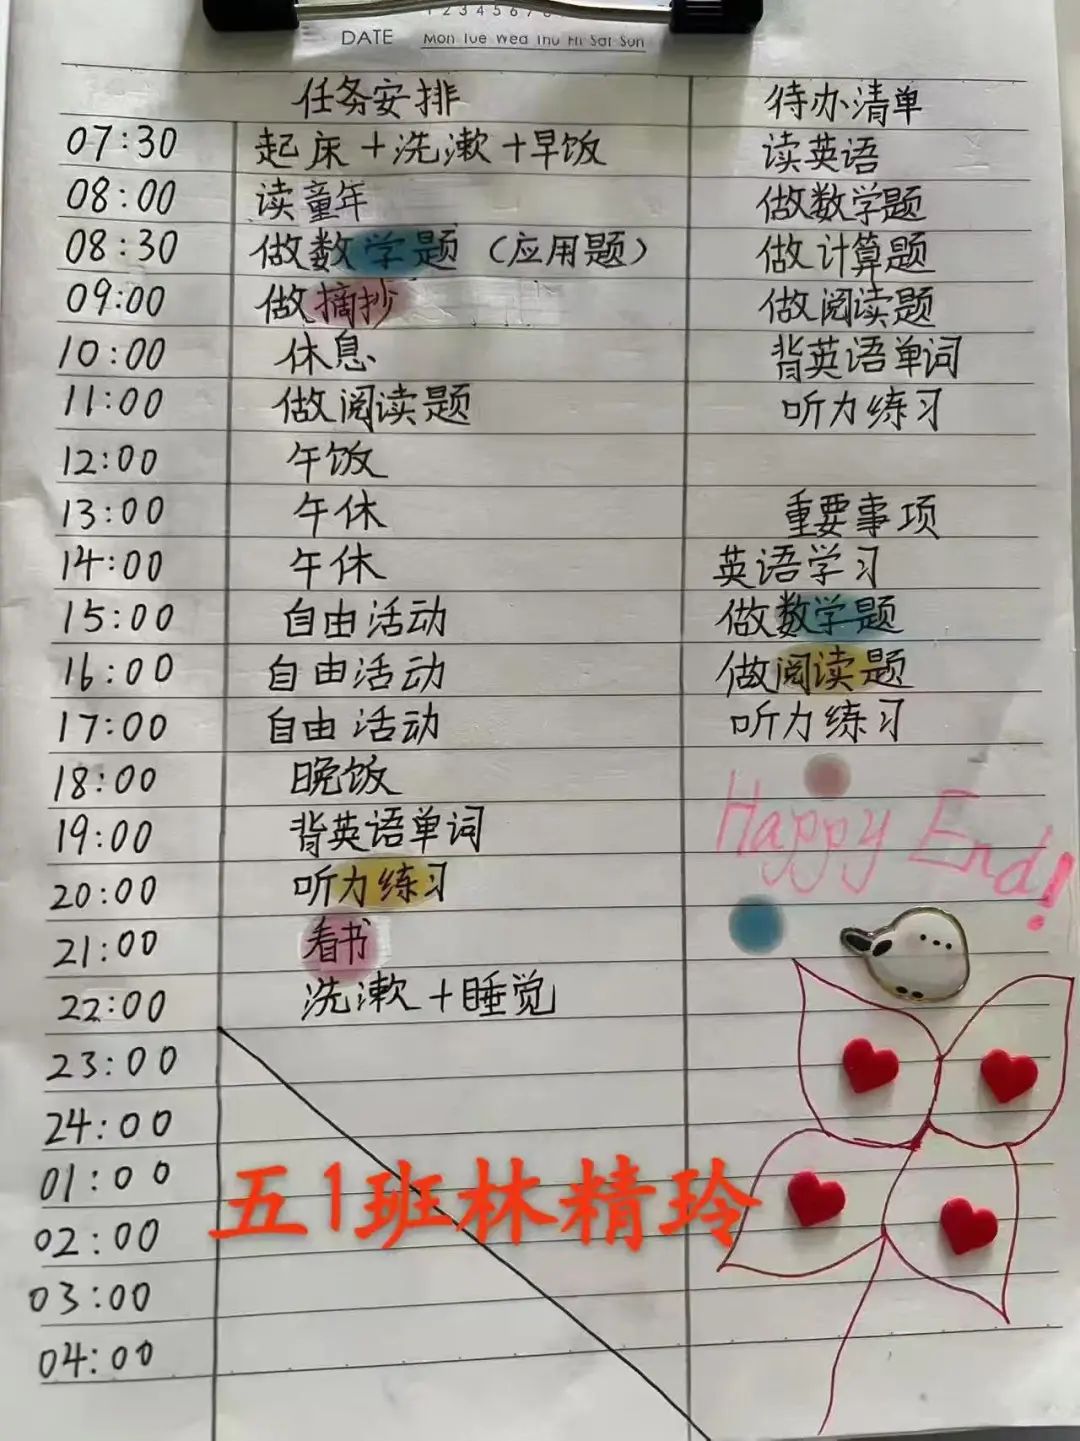 1 2 3 4 5 6 7
DATE Mon Tue Wed Thu Fri Sat Sun
任务安排 待办清单
07:30 起床+洗漱+早饭 读英语
08:00 读童年 做数学题
08:30 做数学题（应用题） 做计算题
09:00 做摘抄 做阅读题
10:00 休息 背英语单词
11:00 做阅读题 听力练习
12:00 午饭
13:00 午休 重要事项
14:00 午休 英语学习
15:00 自由活动 做数学题
16:00 自由活动 做阅读题
17:00 自由活动 听力练习
18:00 晚饭
19:00 背英语单词
Happy End!
20:00 听力练习
21:00 看书
22:00 洗漱+睡觉
23:00
24:00
01:00
五1班林精玲
02:00
03:00
04:00